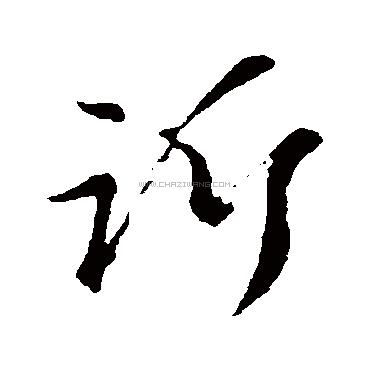 訢
WWW.CHAZIWANG.COM